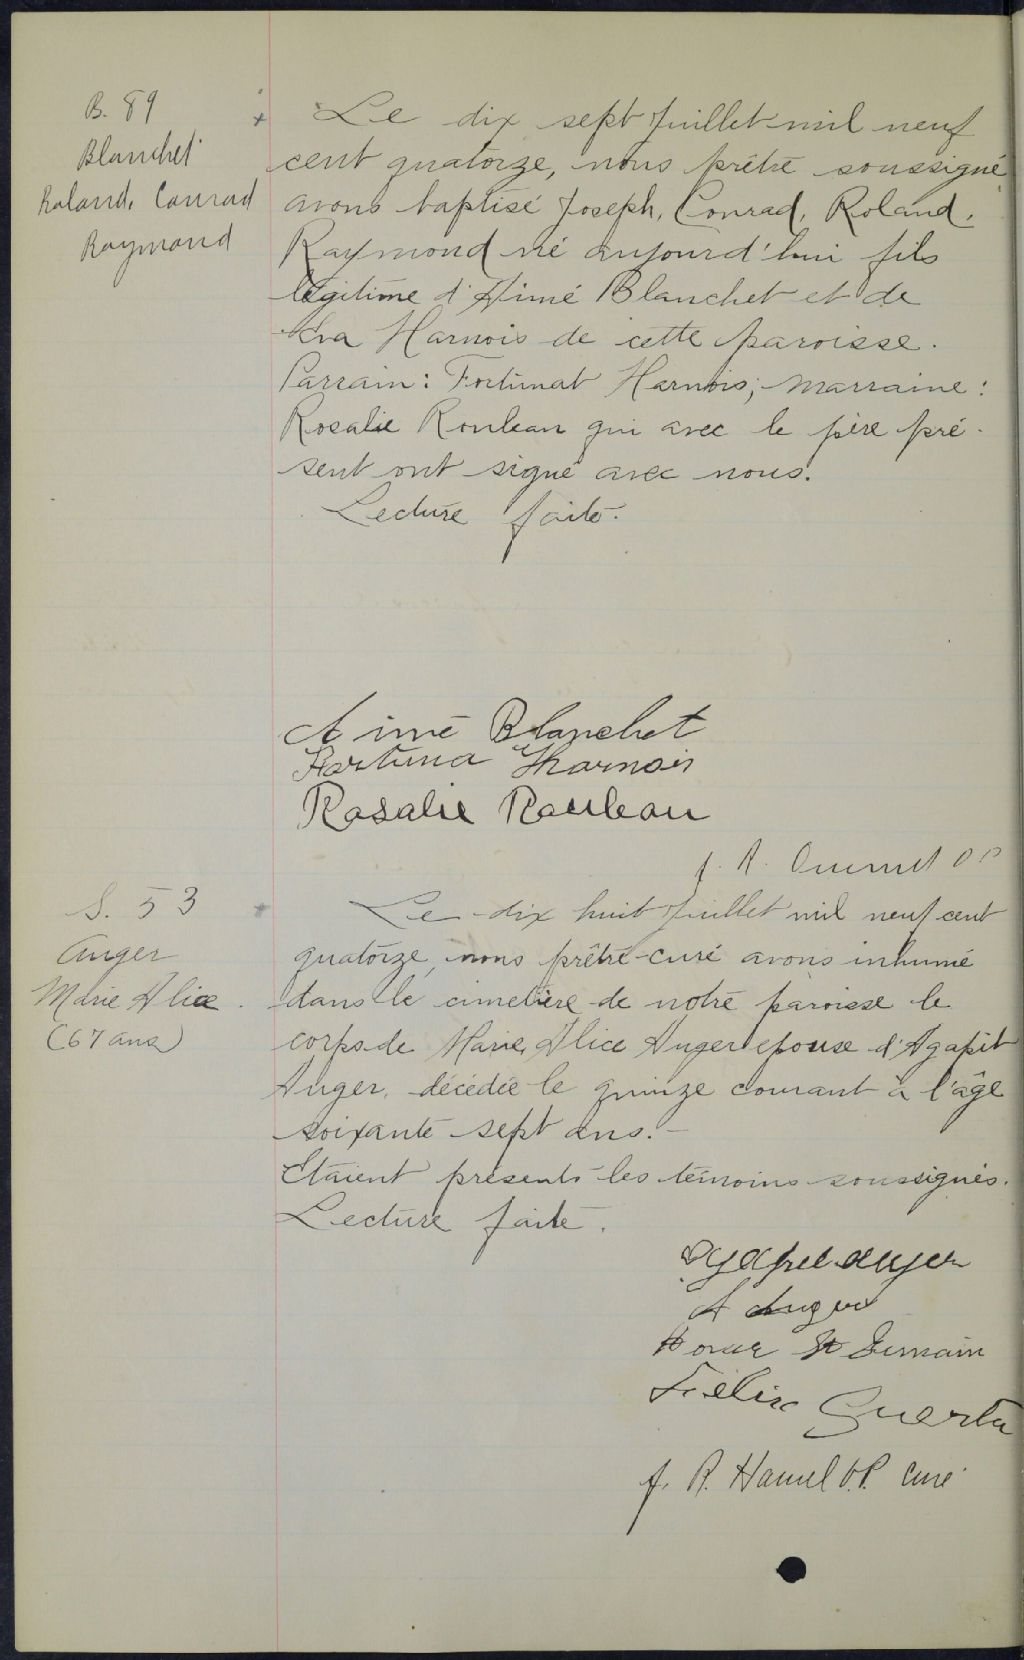 B. 89
Blanchet
Roland, Conrad
Raymond
Le dix sept juillet mil neuf
cent quatorze, nous prêtre soussigné
avons baptisé Joseph, Conrad, Roland,
Raymond né aujourd'hui fils
légitime d'Aimé Blanchet et de
Eva Harnois de cette paroisse.
Parrain: Fortunat Harnois; Marraine:
Rosalie Rouleau qui avec le père pré-
sent ont signé avec nous.
Lecture faite.
Aimé Blanchet
Fortuna Harnois
Rosalie Rouleau
f. A. Ouimet OP
S. 53
Anger
Marie Alice
(67 ans)
Le dix huit juillet mil neuf cent
quatorze, nous prêtre-curé avons inhumé
dans le cimetière de notre paroisse le
corps de Marie Alice Auger épouse d'Agapit
Auger, décédée le quinze courant à l'âge
soixante sept ans.-
Etaient présents les témoins soussignés.
Lecture faite.
A Auger
St Germain
Félix Guertin
f. R. Hamel O.P. curé